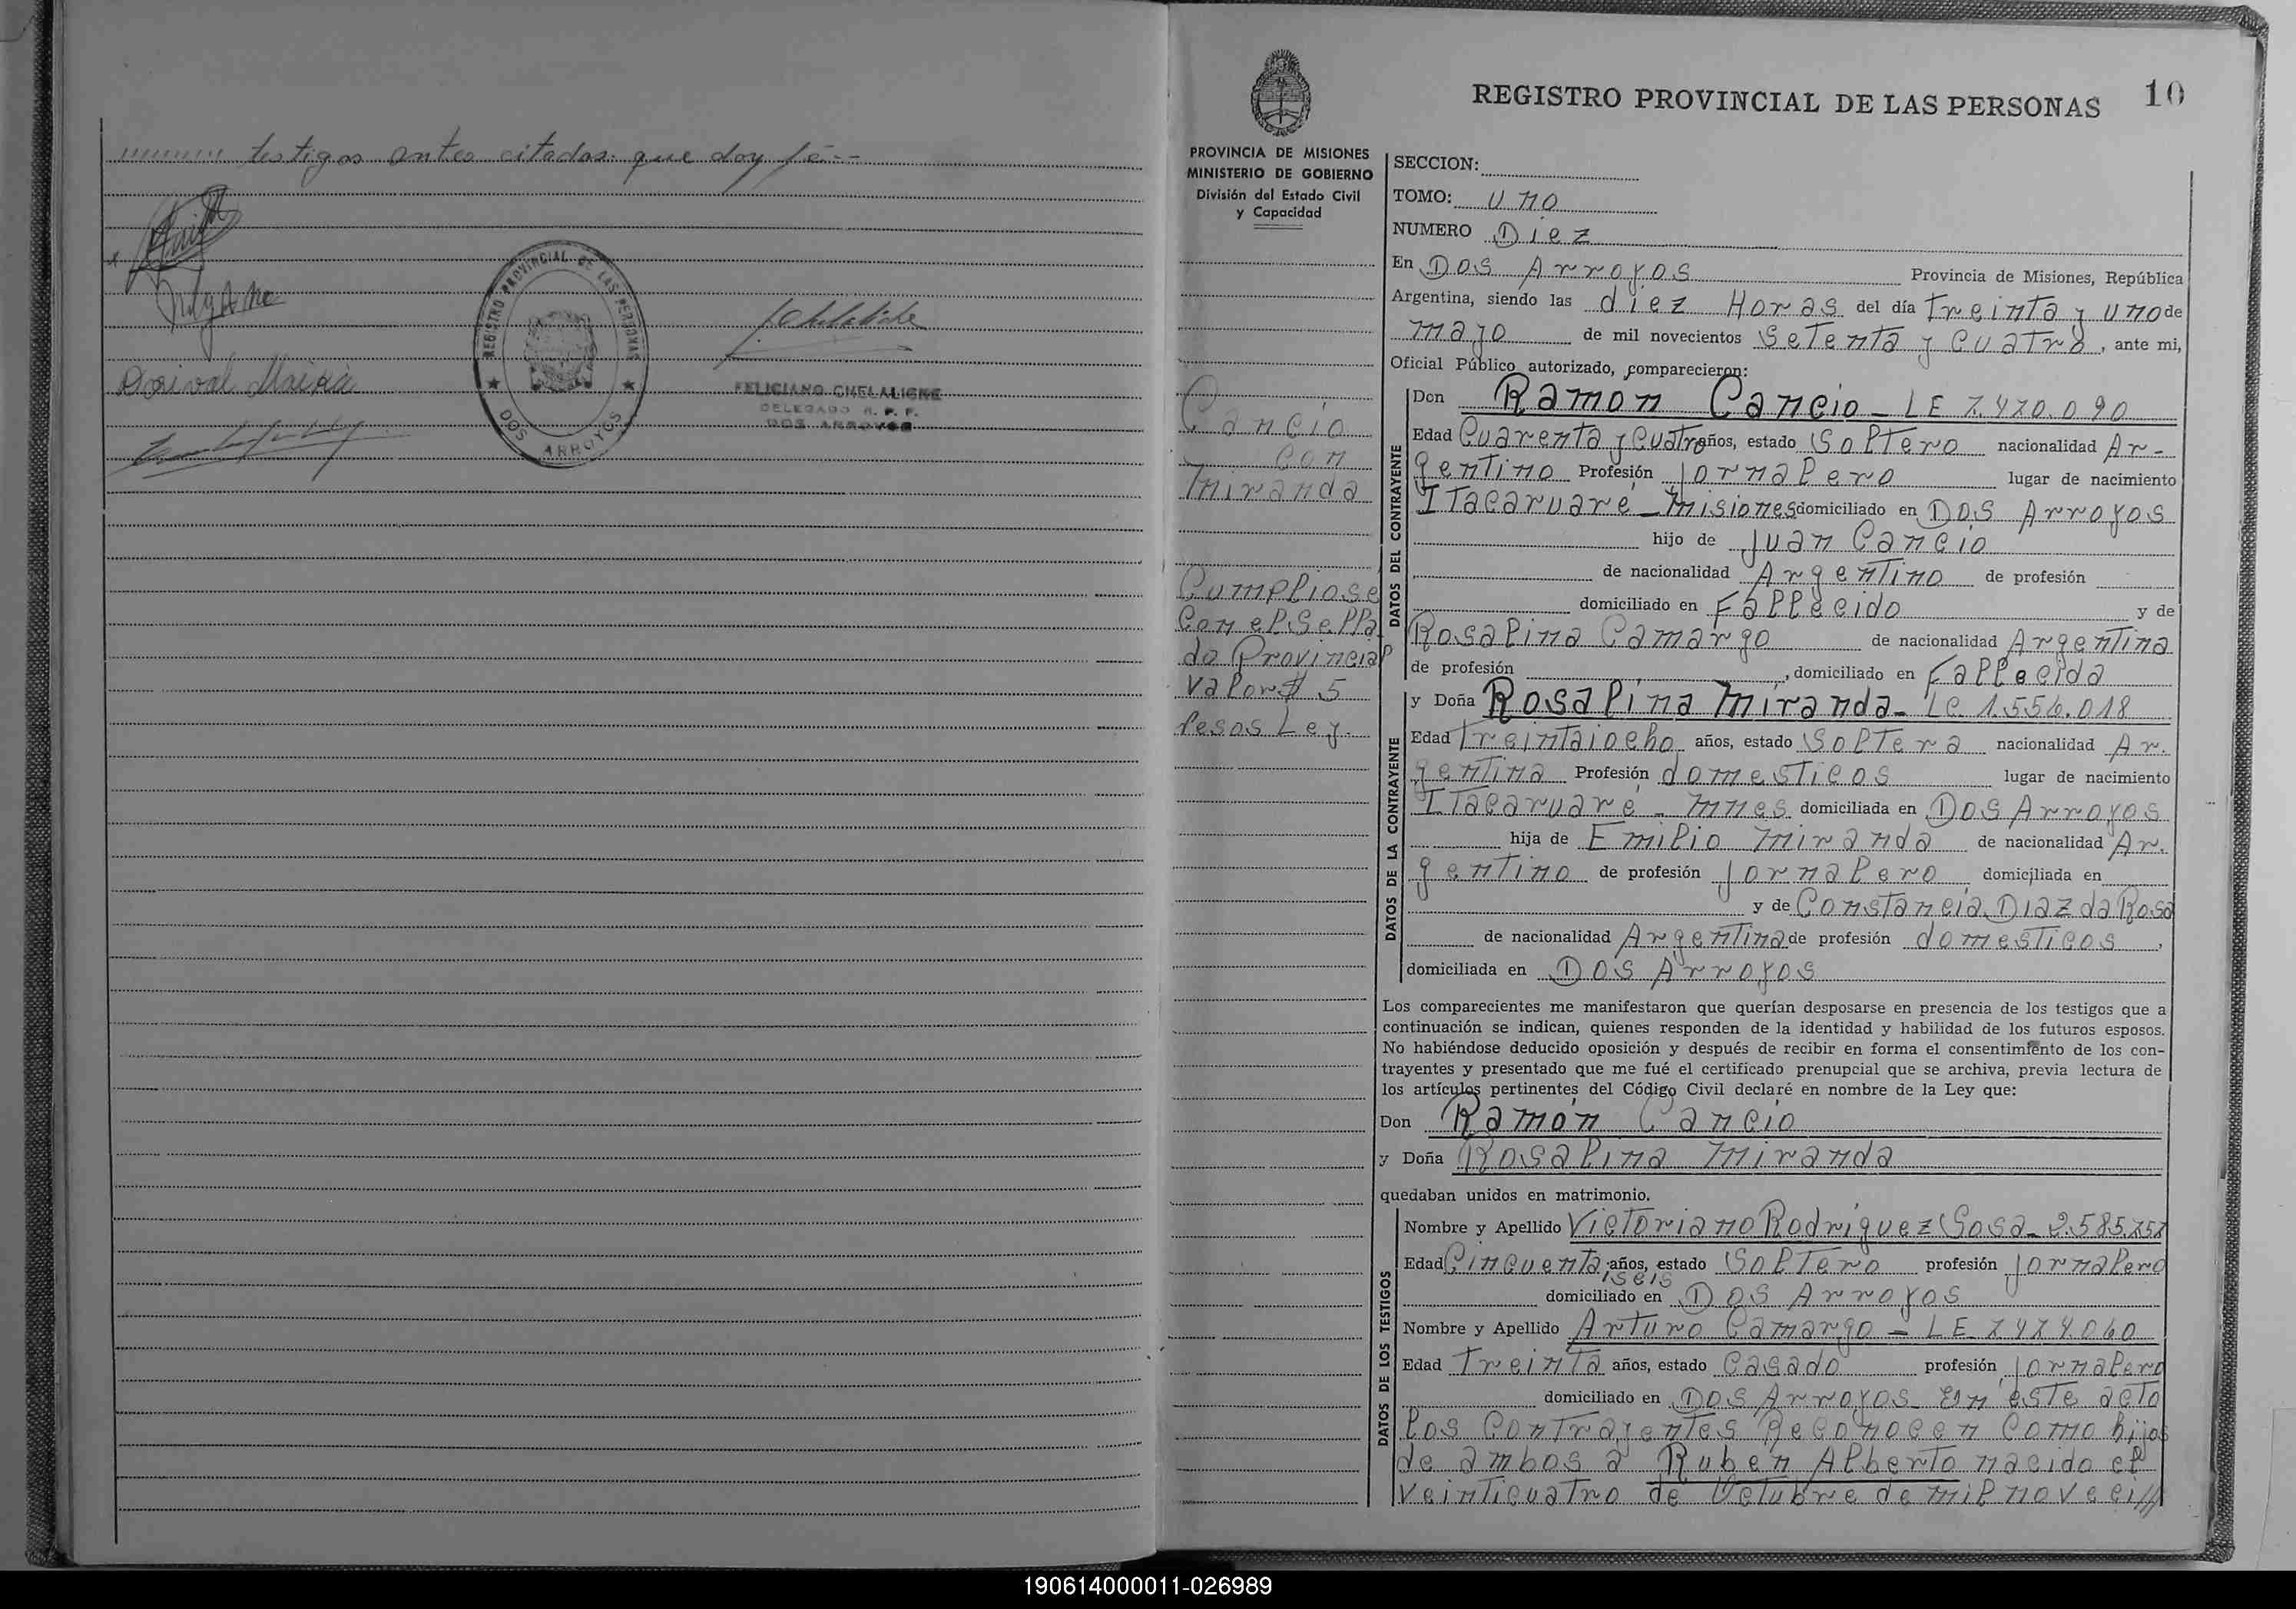 testigos antes citados que doy fé --
REGISTRO PROVINCIAL DE LAS PERSONAS
DOS ARROYOS
FELICIANO CHELALICHE
DELEGADO R. P. P.
DOS ARROYOS
PROVINCIA DE MISIONES
MINISTERIO DE GOBIERNO
División del Estado Civil
y Capacidad
Cancio
con
Miranda
Cumpliose
Con el Sella
do Provincial
valor $ 5
Pesos Ley.
REGISTRO PROVINCIAL DE LAS PERSONAS 10
SECCION:
TOMO: uno
NUMERO Diez
En Dos Arroyos Provincia de Misiones, República
Argentina, siendo las diez Horas del día treinta y uno de
mayo de mil novecientos Setenta y Cuatro, ante mi,
Oficial Público autorizado, comparecieron:
DATOS DEL CONTRAYENTE
Don Ramon Cancio - LE 7.470.090
Edad Cuarenta y Cuatro años, estado Soltero nacionalidad Ar-
gentino Profesión Jornalero lugar de nacimiento
Itacaruaré - Misiones domiciliado en Dos Arroyos
hijo de Juan Cancio
de nacionalidad Argentino de profesión
domiciliado en Fallecido y de
Rosalina Camargo de nacionalidad Argentina
de profesión , domiciliado en Fallecida
DATOS DE LA CONTRAYENTE
y Doña Rosalina Miranda - LC 1.556.018
Edad treintaiocho años, estado Soltera nacionalidad Ar.
gentina Profesión domesticos lugar de nacimiento
Itacaruaré - Mnes domiciliada en Dos Arroyos
hija de Emilio Miranda de nacionalidad Ar.
gentino de profesión Jornalero domiciliada en
y de Constancia Diaz da Rosa
de nacionalidad Argentina de profesión domesticos,
domiciliada en Dos Arroyos
Los comparecientes me manifestaron que querían desposarse en presencia de los testigos que a
continuación se indican, quienes responden de la identidad y habilidad de los futuros esposos.
No habiéndose deducido oposición y después de recibir en forma el consentimiento de los con-
trayentes y presentado que me fué el certificado prenupcial que se archiva, previa lectura de
los artículos pertinentes del Código Civil declaré en nombre de la Ley que:
Don Ramón Cancio
y Doña Rosalina Miranda
quedaban unidos en matrimonio.
DATOS DE LOS TESTIGOS
Nombre y Apellido Victoriano Rodriguez Sosa - 2.585.757
Edad Cincuenta años, estado Soltero profesión Jornalero
iseis
domiciliado en Dos Arroyos
Nombre y Apellido Arturo Camargo - LE 7.474.060
Edad Treinta años, estado Casado profesión Jornalero
domiciliado en Dos Arroyos En este acto
los Contrayentes Reconocen Como hijos
de ambos a Ruben Alberto nacido el
veinticuatro de Octubre de mil noveci//
190614000011-026989